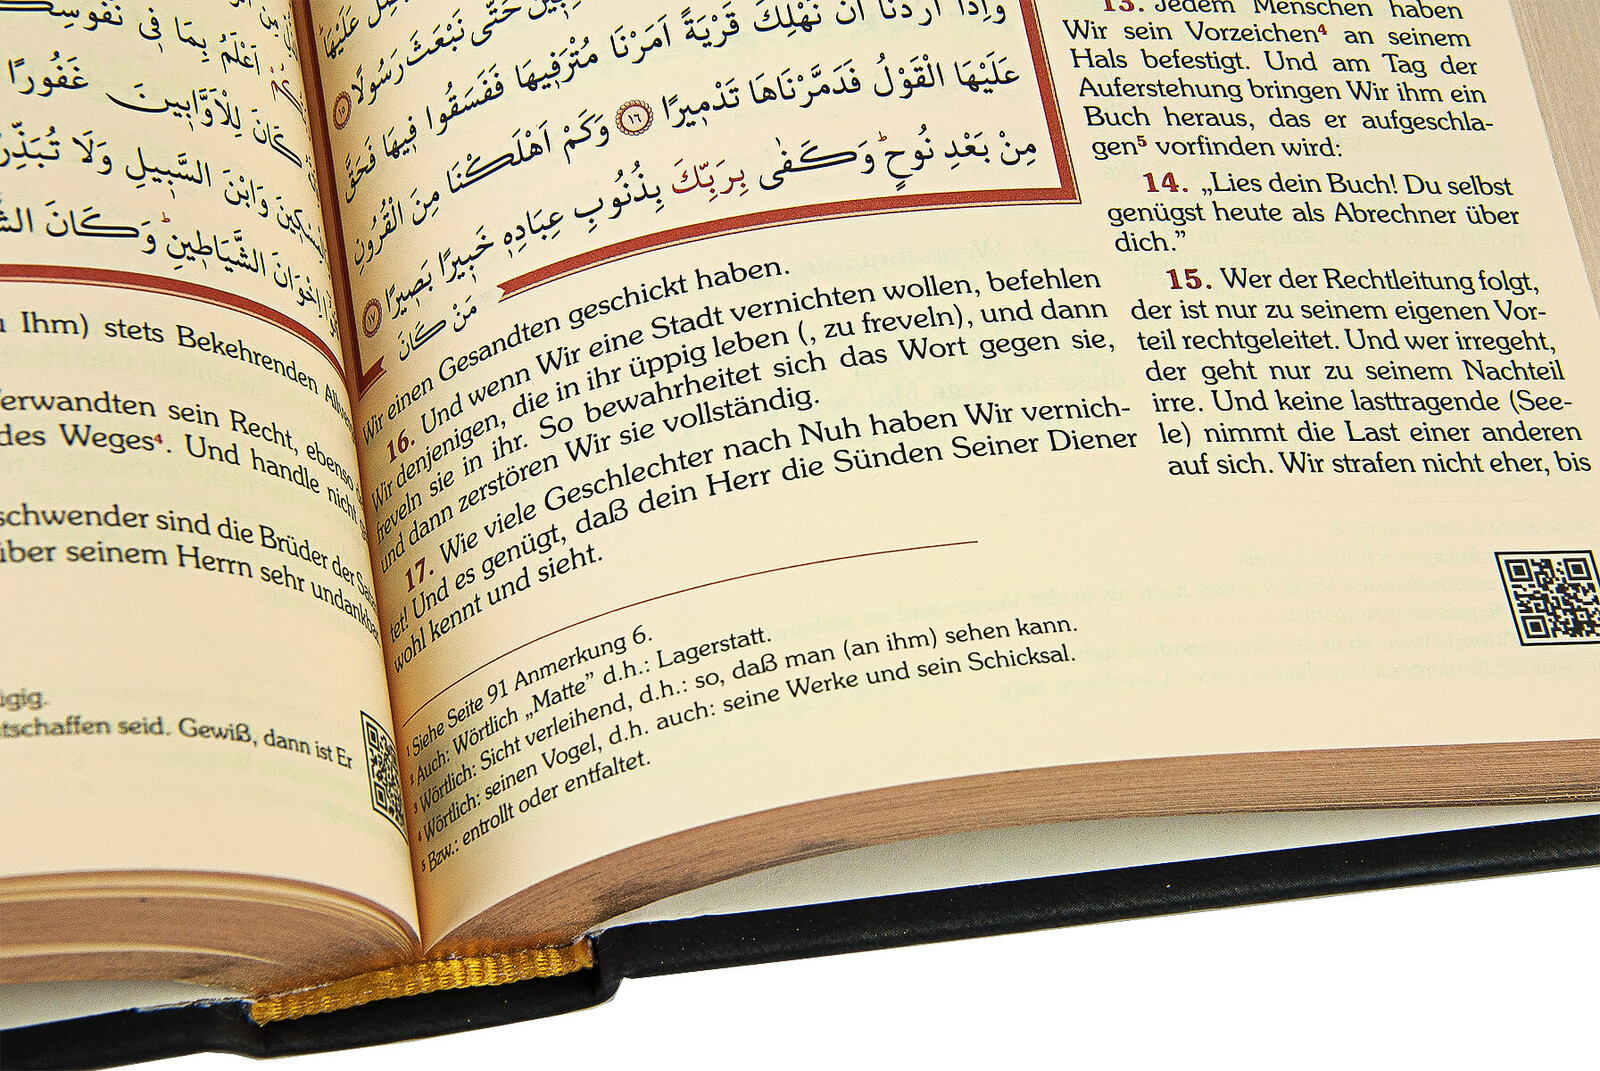 اَعْلَمُ بِمَا فٖى نُفُوسِكُمْ
كَانَ لِلْاَوَّابٖينَ غَفُورًا
وَابْنَ السَّبٖيلِ وَلَا تُبَذِّرْ
اِخْوَانَ الشَّيَاطٖينِ وَكَانَ
Ihm) stets Bekehrenden
sein Recht, ebenso
des Weges⁴. Und handle nicht
sind die Brüder der
seinem Herrn sehr
seid. Gewiß, dann ist Er
حَتّٰى نَبْعَثَ رَسُولًا ١٥
وَاِذَا اَرَدْنَا اَنْ نُهْلِكَ قَرْيَةً اَمَرْنَا مُتْرَفٖيهَا فَفَسَقُوا فٖيهَا فَحَقَّ
عَلَيْهَا الْقَوْلُ فَدَمَّرْنَاهَا تَدْمٖيرًا ١٦ وَكَمْ اَهْلَكْنَا مِنَ الْقُرُونِ
مِنْ بَعْدِ نُوحٍ وَكَفٰى بِرَبِّكَ بِذُنُوبِ عِبَادِهٖ خَبٖيرًا بَصٖيرًا ١٧
مَنْ كَانَ
Wir einen Gesandten geschickt haben.
16. Und wenn Wir eine Stadt vernichten wollen, befehlen
Wir denjenigen, die in ihr üppig leben (, zu freveln), und dann
freveln sie in ihr. So bewahrheitet sich das Wort gegen sie,
und dann zerstören Wir sie vollständig.
17. Wie viele Geschlechter nach Nuh haben Wir vernich-
tet! Und es genügt, daß dein Herr die Sünden Seiner Diener
wohl kennt und sieht.
¹ Siehe Seite 91 Anmerkung 6.
² Auch: Wörtlich „Matte” d.h.: Lagerstatt.
³ Wörtlich: Sicht verleihend, d.h.: so, daß man (an ihm) sehen kann.
⁴ Wörtlich: seinen Vogel, d.h. auch: seine Werke und sein Schicksal.
⁵ Bzw.: entrollt oder entfaltet.
13. Jedem Menschen haben
Wir sein Vorzeichen⁴ an seinem
Hals befestigt. Und am Tag der
Auferstehung bringen Wir ihm ein
Buch heraus, das er aufgeschla-
gen⁵ vorfinden wird:
14. „Lies dein Buch! Du selbst
genügst heute als Abrechner über
dich.”
15. Wer der Rechtleitung folgt,
der ist nur zu seinem eigenen Vor-
teil rechtgeleitet. Und wer irregeht,
der geht nur zu seinem Nachteil
irre. Und keine lasttragende (See-
le) nimmt die Last einer anderen
auf sich. Wir strafen nicht eher, bis